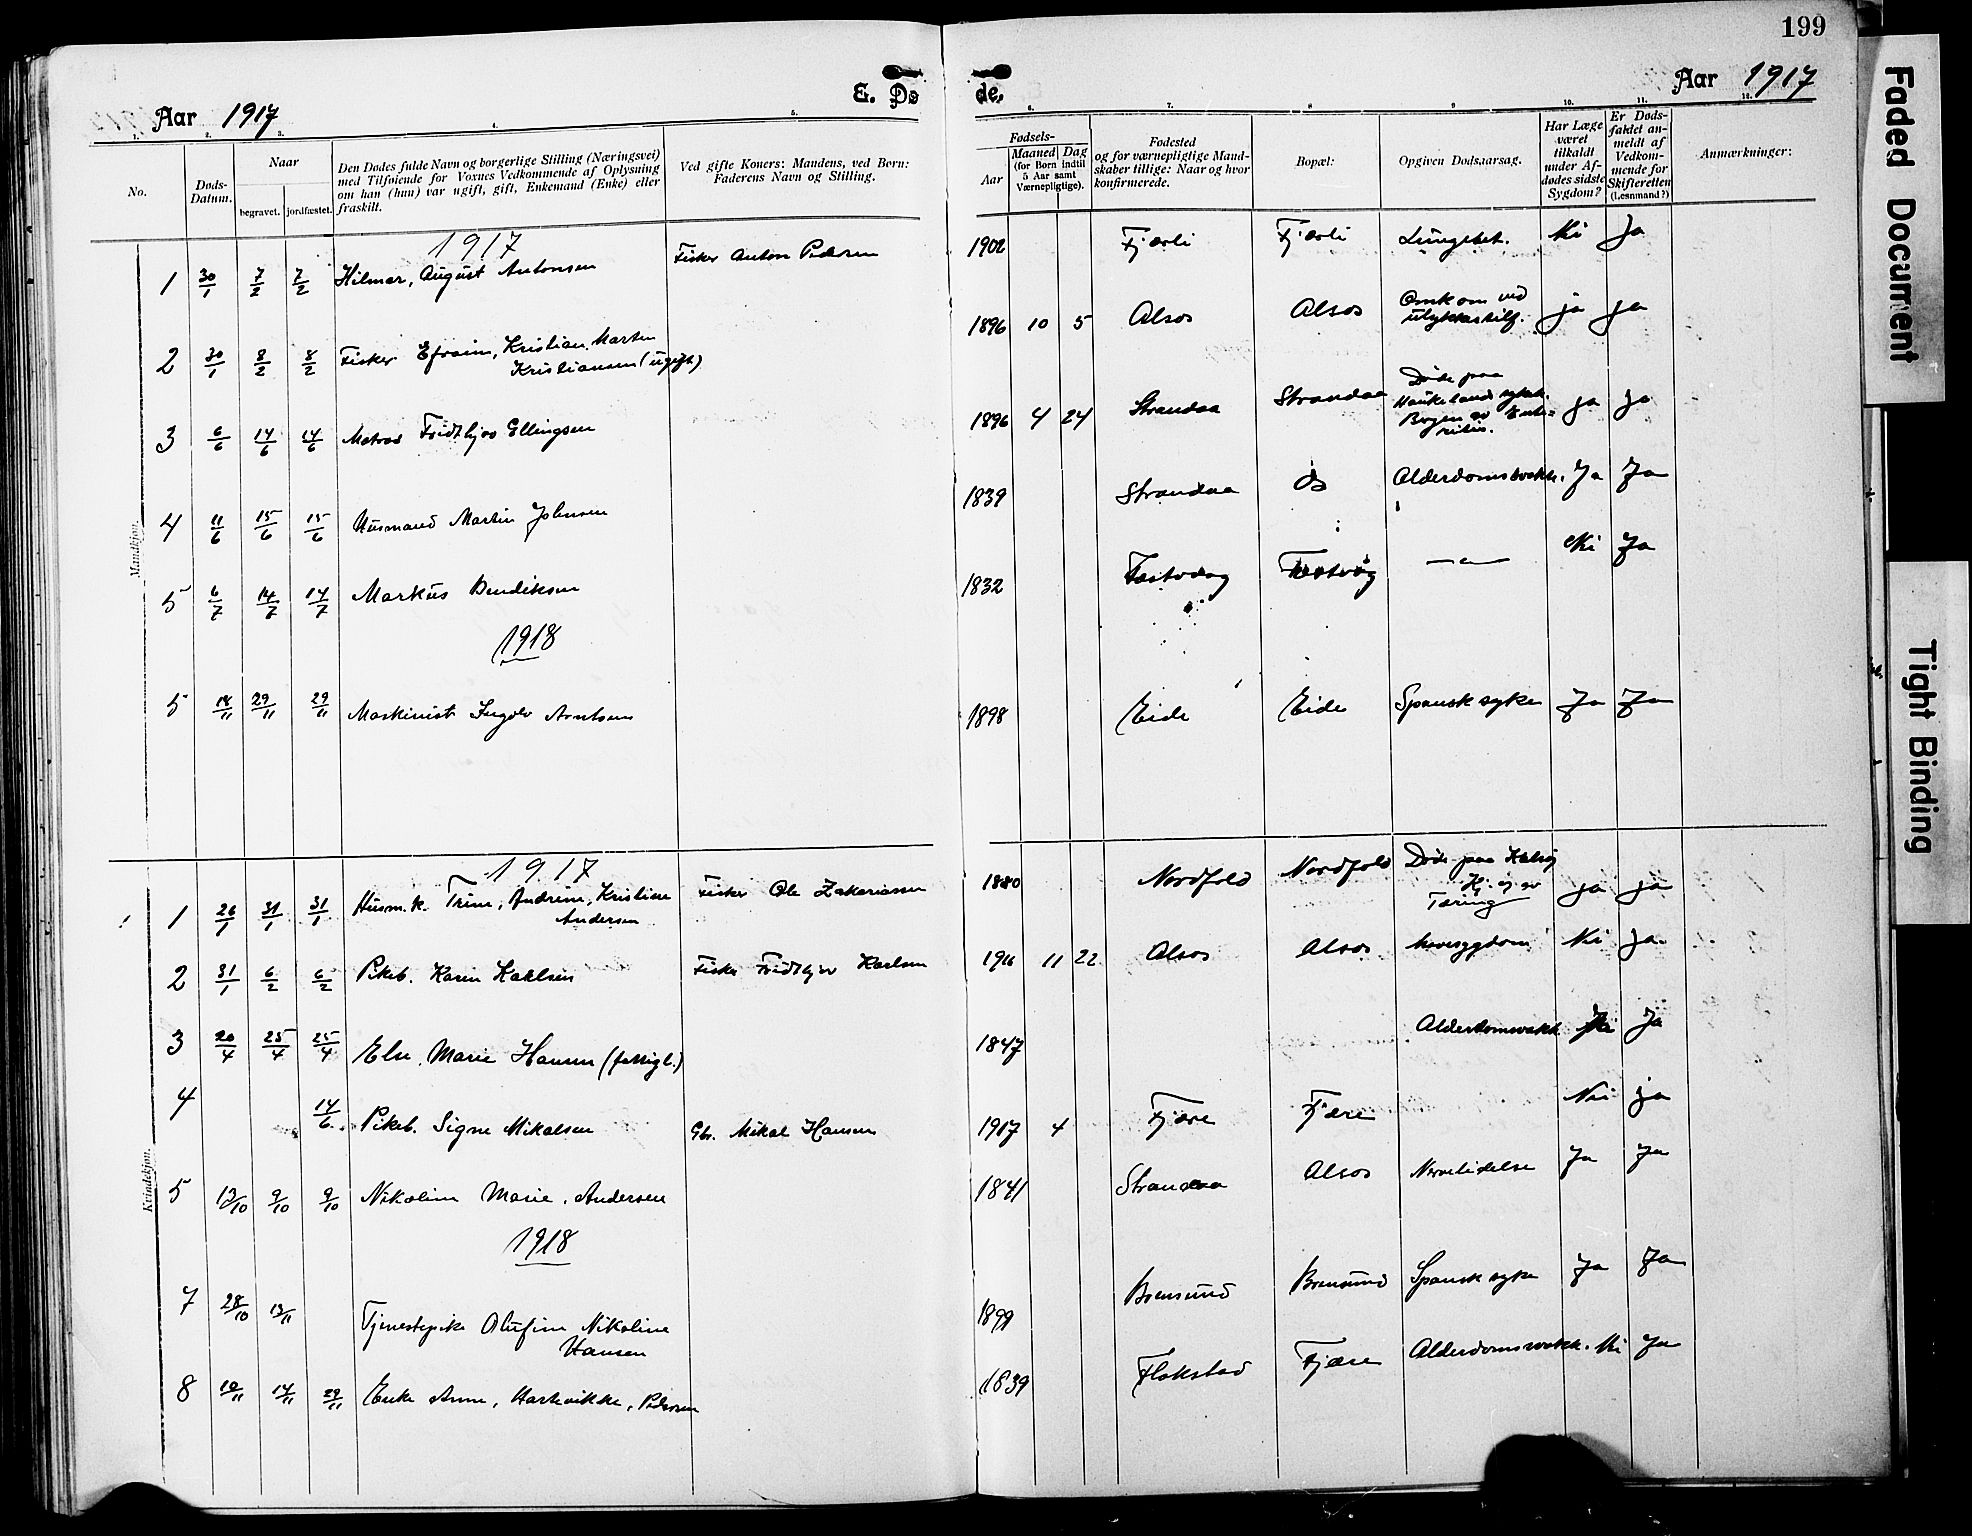 199
Aar 1917
E. Dø
de.
Aar 1917
Faded Document
Tight Binding
1. 2. 3. 4. 5. 6. 7. 8 9 10. 11. 12.
No.
Døds-
Datum.
Naar
begravet. jordfæstet.
Den Dødes fulde Navn og borgerlige Stilling (Næringsvei)
med Tilføiende for Voxnes Vedkommende af Oplysning
om han (hun) var ugift, gift, Enkemand (Enke) eller
fraskilt.
Ved gifte Koners: Mandens, ved Børn:
Faderens Navn og Stilling.
Fødsels-
Aar
Maaned Dag
(for Børn indtil
5 Aar samt
Værnepligtige).
Fødested
og for værnepligtige Mand-
skaber tillige: Naar og hvor
konfirmerede.
Bopæl:
Opgiven Dødsaarsag.
Har Læge
været
tilkaldt
under Af-
dødes sidste
Sygdom?
Er Døds-
faldet an-
meldt af
Vedkom-
mende for
Skifteretten
(Lensmand?)
Anmærkninger:
Mandkjøn.
1917
1 30/1 7/2 7/2 Hilmar, August Antonsen Fisker Anton Pedersen 1902 Fjærli Fjærli Lungebet. Nei Ja
2 30/1 8/2 8/2 Fisker Efraim, Kristian, Marten
Kristiansen (ugift) 1896 10 5 Alsos Alsos Omkom ved
ulykkestilf. ja ja
3 6/6 14/6 14/6 Matros Fridthjov Ellingsen 1896 4 24 Strandaa Strandaa Døde paa
Haukeland sykeh.
Bergen av
ja ja
4 11/6 15/6 15/6 Husmand Martin Johnsen 1839 Strandaa do Alderdomssvakh. Ja Ja
5 6/7 14/7 14/7 Markus Bendiksen 1832 Fæstvaag Festvåg —"— Nei Ja
1918
5 18/11 29/11 29/11 Maskinist Ingolv Arntsen 1898 Eide Eide Spansk syke Ja Ja
Kvindekjøn.
1917
1 26/1 31/1 31/1 Husm.k. Trine, Andrine, Kristine
Andersen Fisker Ole Zakariassen 1880 Nordfold Nordfold Døde paa
Tæring ja ja
2 31/1 6/2 6/2 Pikeb. Karen Karlsen Fisker Fridthjov Karlsen 1916 11 22 Alsos Alsos Mavesygdom Nei ja
3 20/4 25/4 25/4 Else, Marie Hansen (fattigl.) 1847 Alderdomsvakh Nei Ja
4 14/6 Pikeb. Signe Mikalsen Gbr. Mikal Hansen 1917 4 Fjære Fjære Nei ja
5 13/10 9/10 9/10 Nikoline Marie, Andersen 1841 Strandaa Alsos Nervelidelse Ja Ja
1918
7 28/10 13/11 Tjenestepike Olufine Nikoline
Hansen 1899 Brensund Brensund Spansk syke Ja Ja
8 10/11 14/11 29/11 Enke Anne, Hartvikke, Pedersen 1839 Flakstad Fjære Alderdomssvakh. Nei Ja